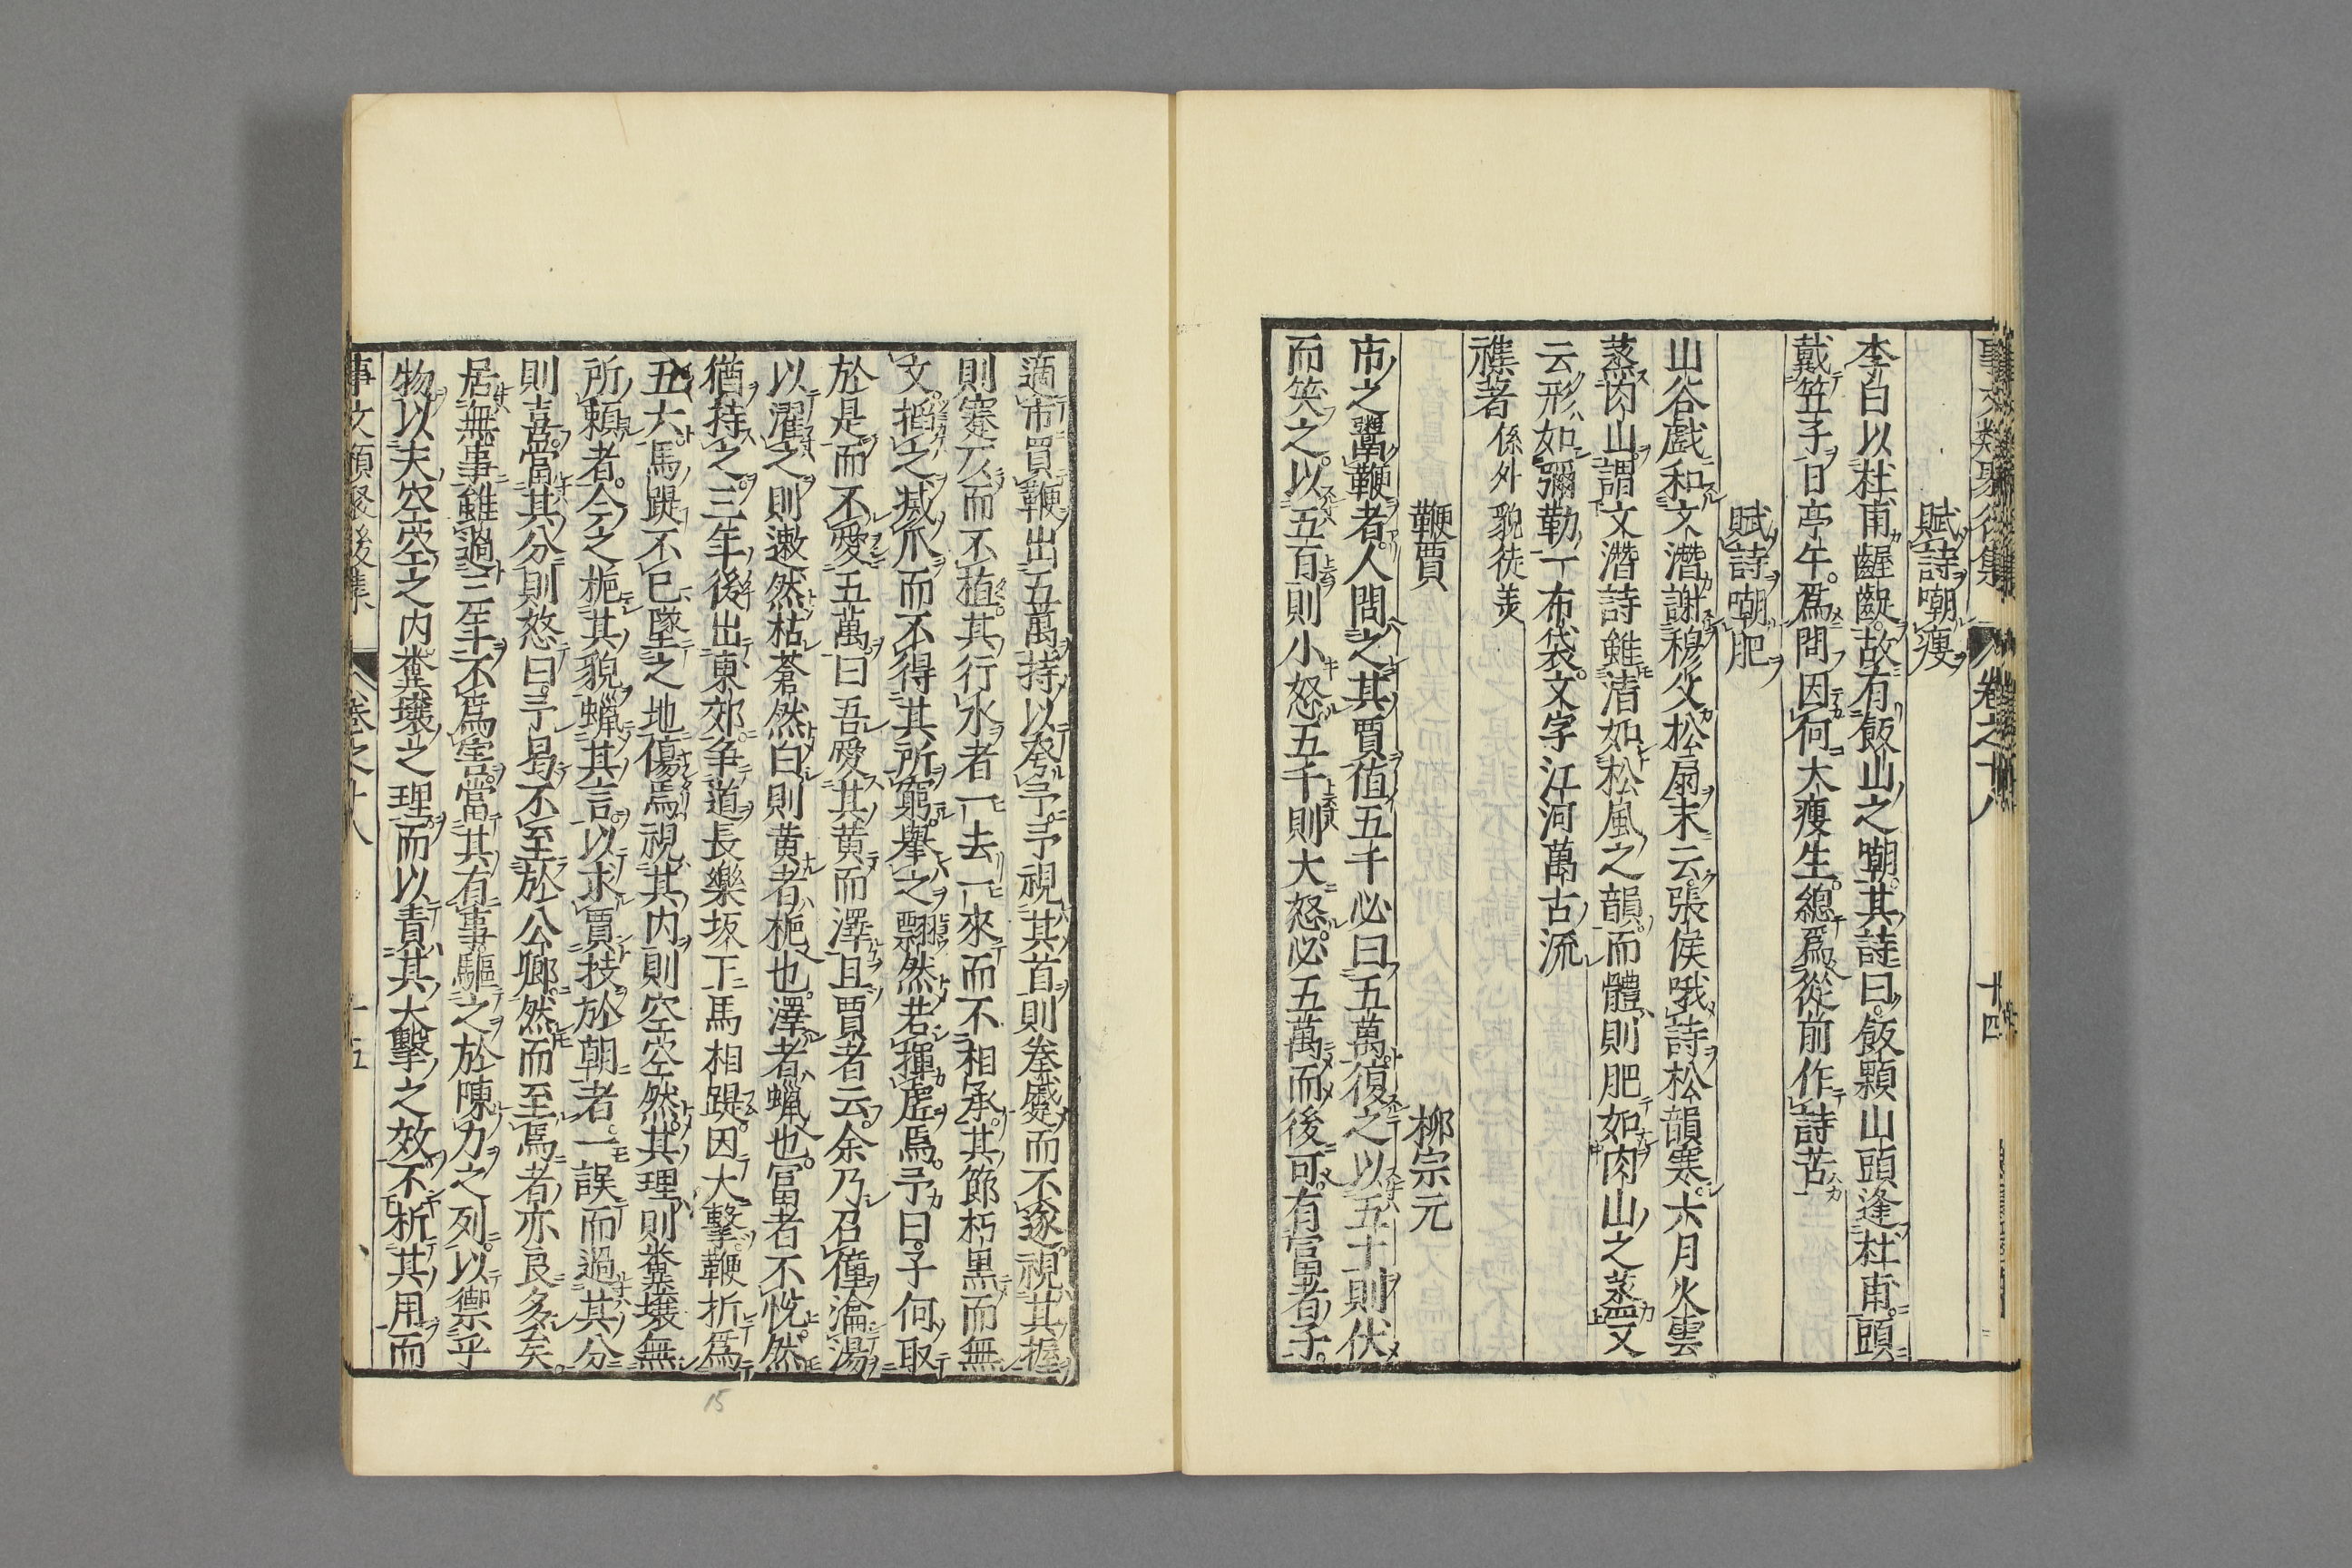 事文類聚後集 卷之十八 十四
賦詩嘲瘦
李白以杜甫齷齪故有飯山之嘲其詩曰飯顆山頭逢杜甫頭
戴笠子日亭午爲問因何太瘦生緫爲從前作詩苦
賦詩嘲肥
山谷戯和文潛謝穆父松扇末云張侯哦詩松韻寒六月火雲
蒸肉山謂文潛詩雖淸如松風之韻而體則肥如肉山之蒸又
云形如彌勒一布袋文字江河萬古流
襍著 係外貌徒羙
鞭賈 柳宗元
市之鬻鞭者人問之其賈值五千必曰五萬復之以五十則伏
而笑之以五百則小怒五千則大怒必五萬而後可有富者子
適市買鞭出五萬持以夸予予視其首則拳蹙而不遂視其握
則蹇仄而不植其行水者一去一來而不相承其節朽黑而無
文搯之滅爪而不得其所窮舉之翲然若揮虛焉予曰子何取
於是而不愛五萬曰吾愛其黃而澤且賈者云余乃召僮瀹湯
以濯之則遬然枯蒼然白則黃者梔也澤者蠟也富者不悅然
猶持之三年後出東郊争道長樂坂下馬相踶因大擊鞭折爲
五六馬踶不已墜之地傷焉視其内則空空然其理則糞壤無
所頼者今之梔其貌蠟其言以求賈技於朝者一誤而過其分
則喜當其分則怒曰予曷不至於公卿然而至焉者亦良多矣
居無事雖過三年不爲害當其有事驅之於陳力之列以禦乎
物以夫空空之内糞壤之理而以責其大擊之效不析其用而
事文類聚後集 卷之十八 十五
15